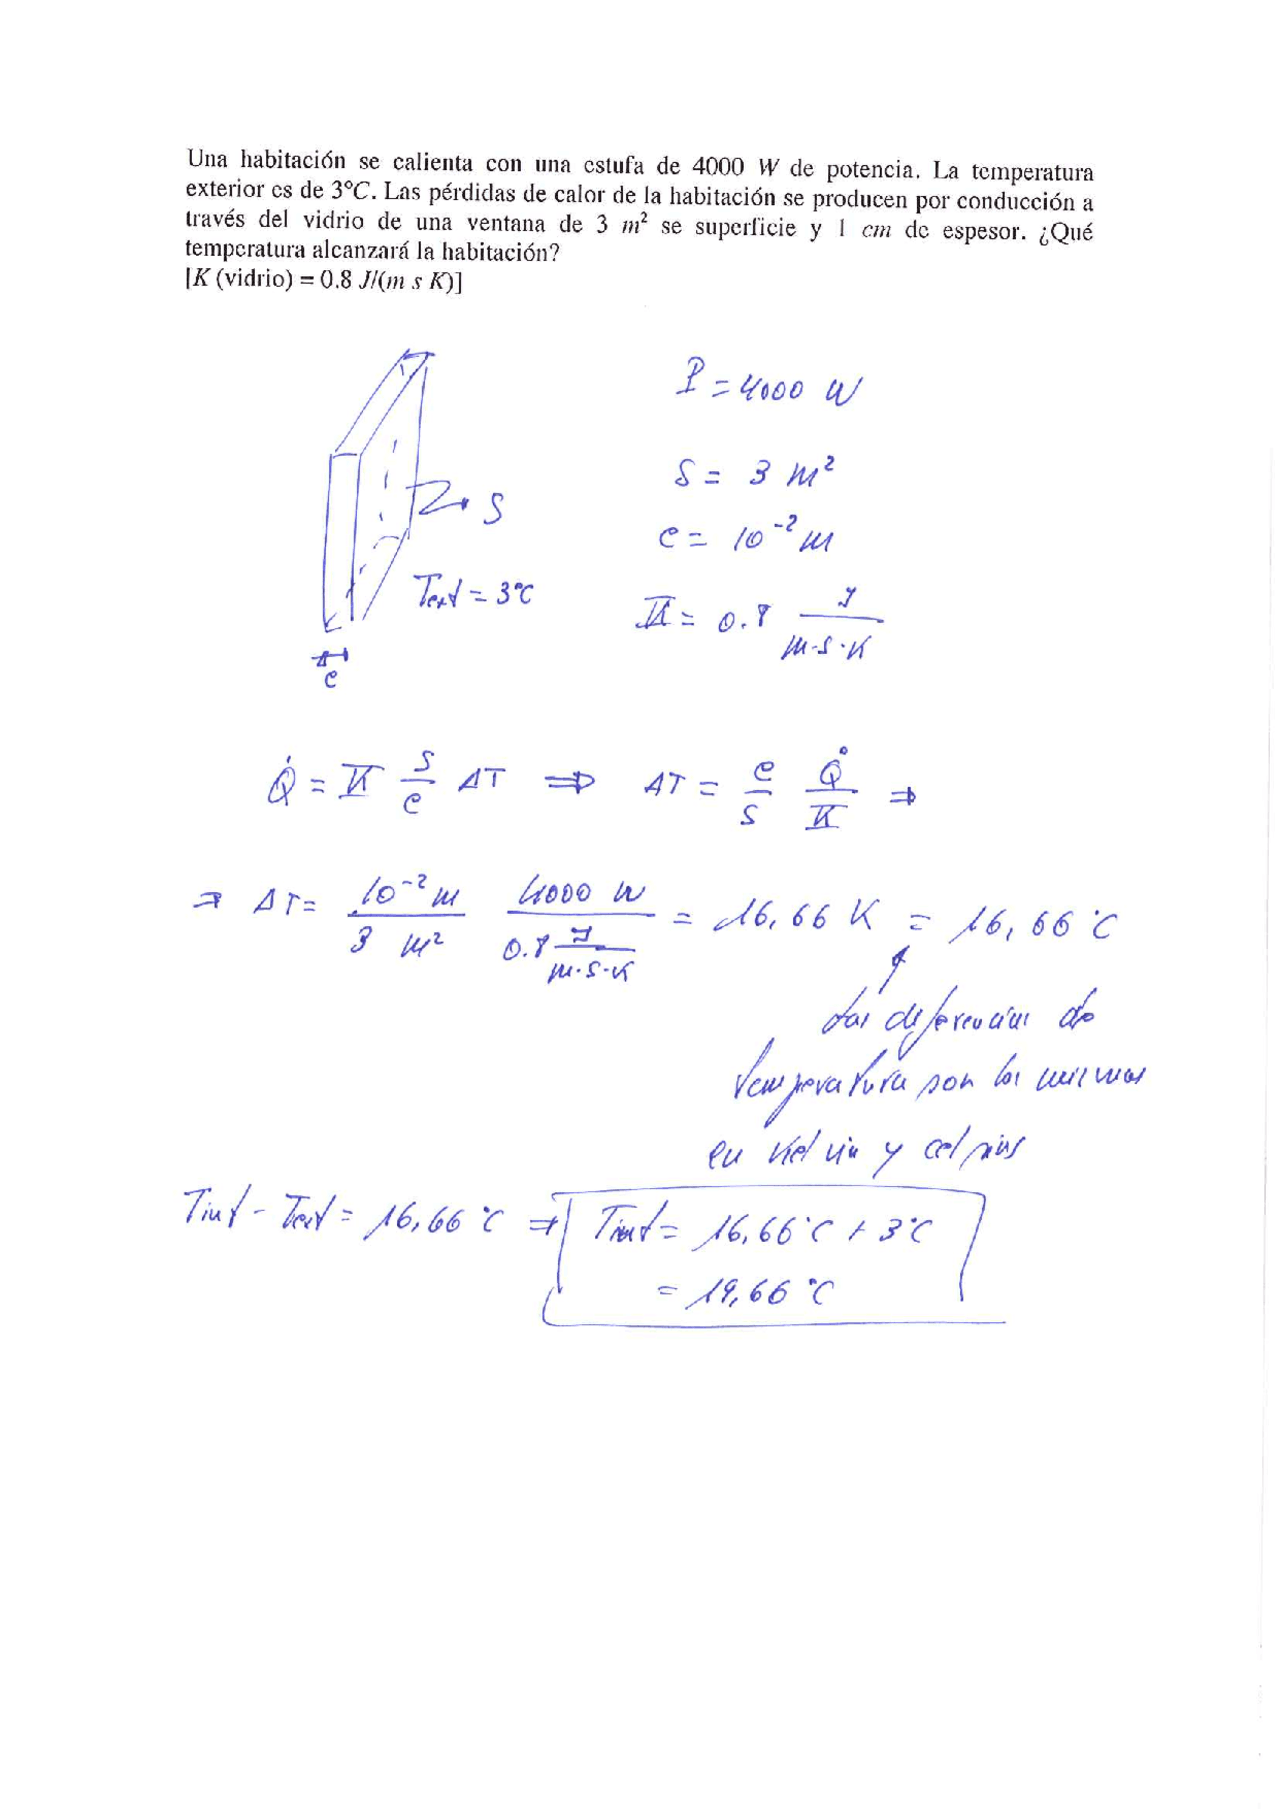 Una habitación se calienta con una estufa de 4000 W de potencia. La temperatura
exterior es de 3ºC. Las pérdidas de calor de la habitación se producen por conducción a
través del vidrio de una ventana de 3 m² se superficie y 1 cm de espesor. ¿Qué
temperatura alcanzará la habitación?
[K (vidrio) = 0.8 J/(m s K)]
P = 4000 W
S = 3 m²
S
e = 10⁻² m
Text = 3ºC
K = 0.8 J/(m·s·K)
e
Q̇ = K S/e ΔT ⇒ ΔT = e/S Q̇/K ⇒
⇒ ΔT = 10⁻² m / 3 m² 4000 W / 0.8 J/(m·s·K) = 16,66 K = 16,66 ºC
Las diferencias de
temperatura son las mismas
en kelvin y celsius
Tint - Text = 16,66 ºC ⇒ Tint = 16,66ºC + 3ºC
= 19,66 ºC